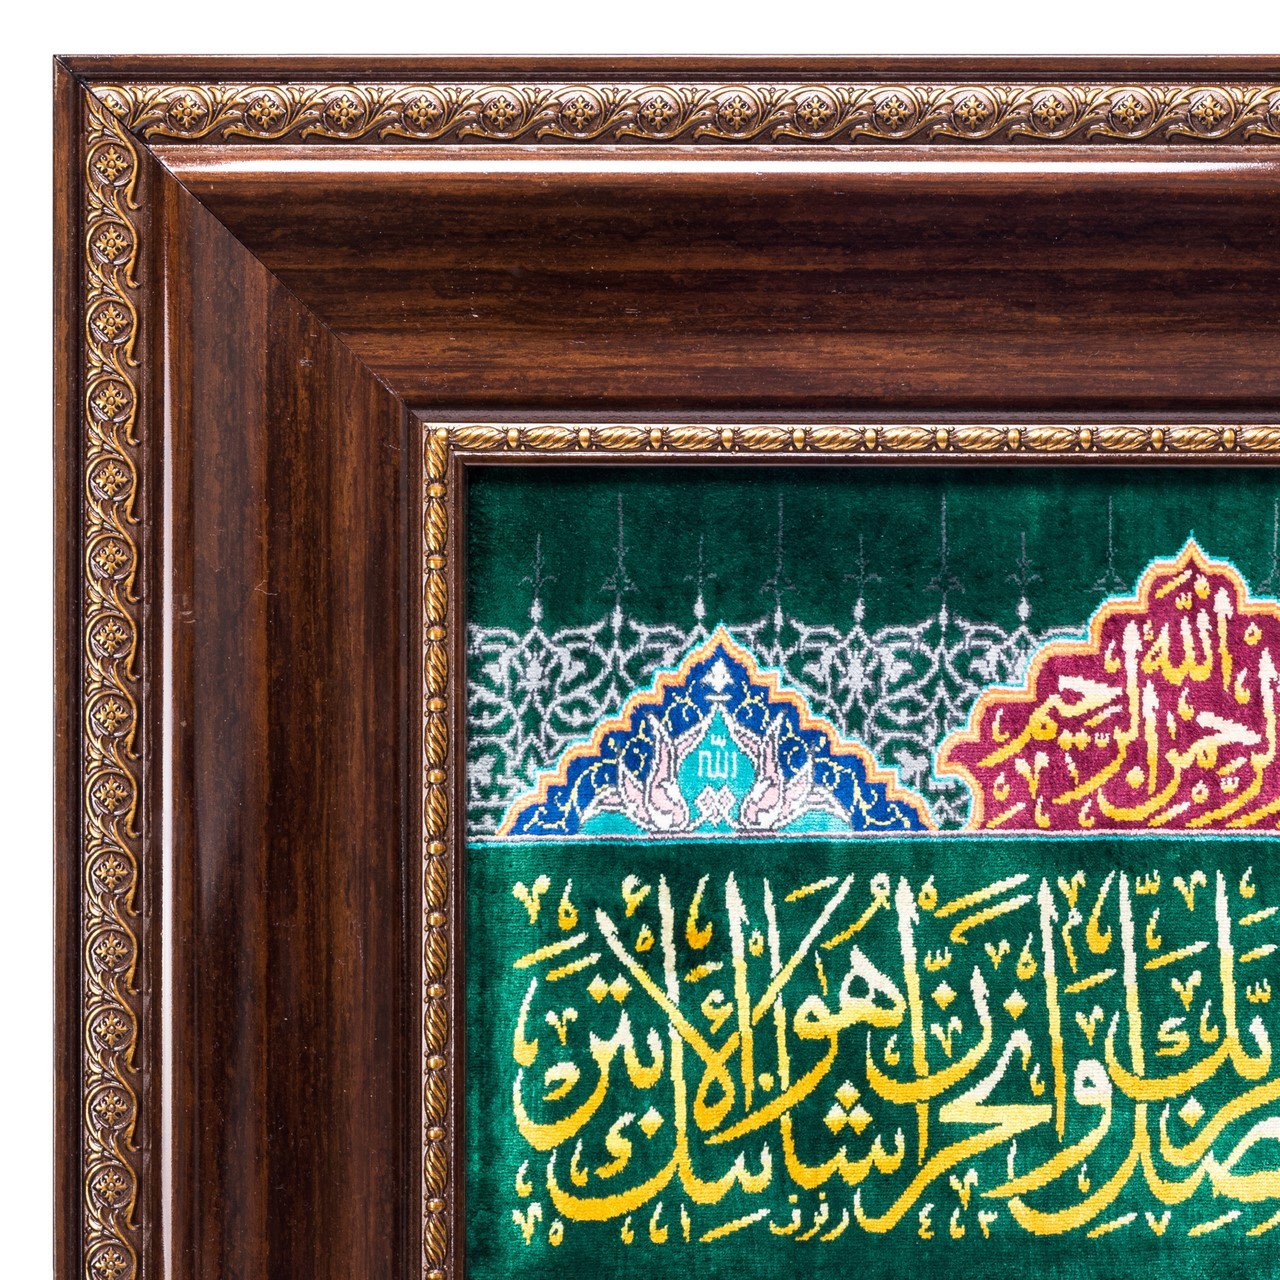 اللهِ الرَّحْمٰنِ الرَّحِيمِ
الله
لِرَبِّكَ وَانْحَرْ إِنَّ شَانِئَكَ هُوَ الْأَبْتَرُ